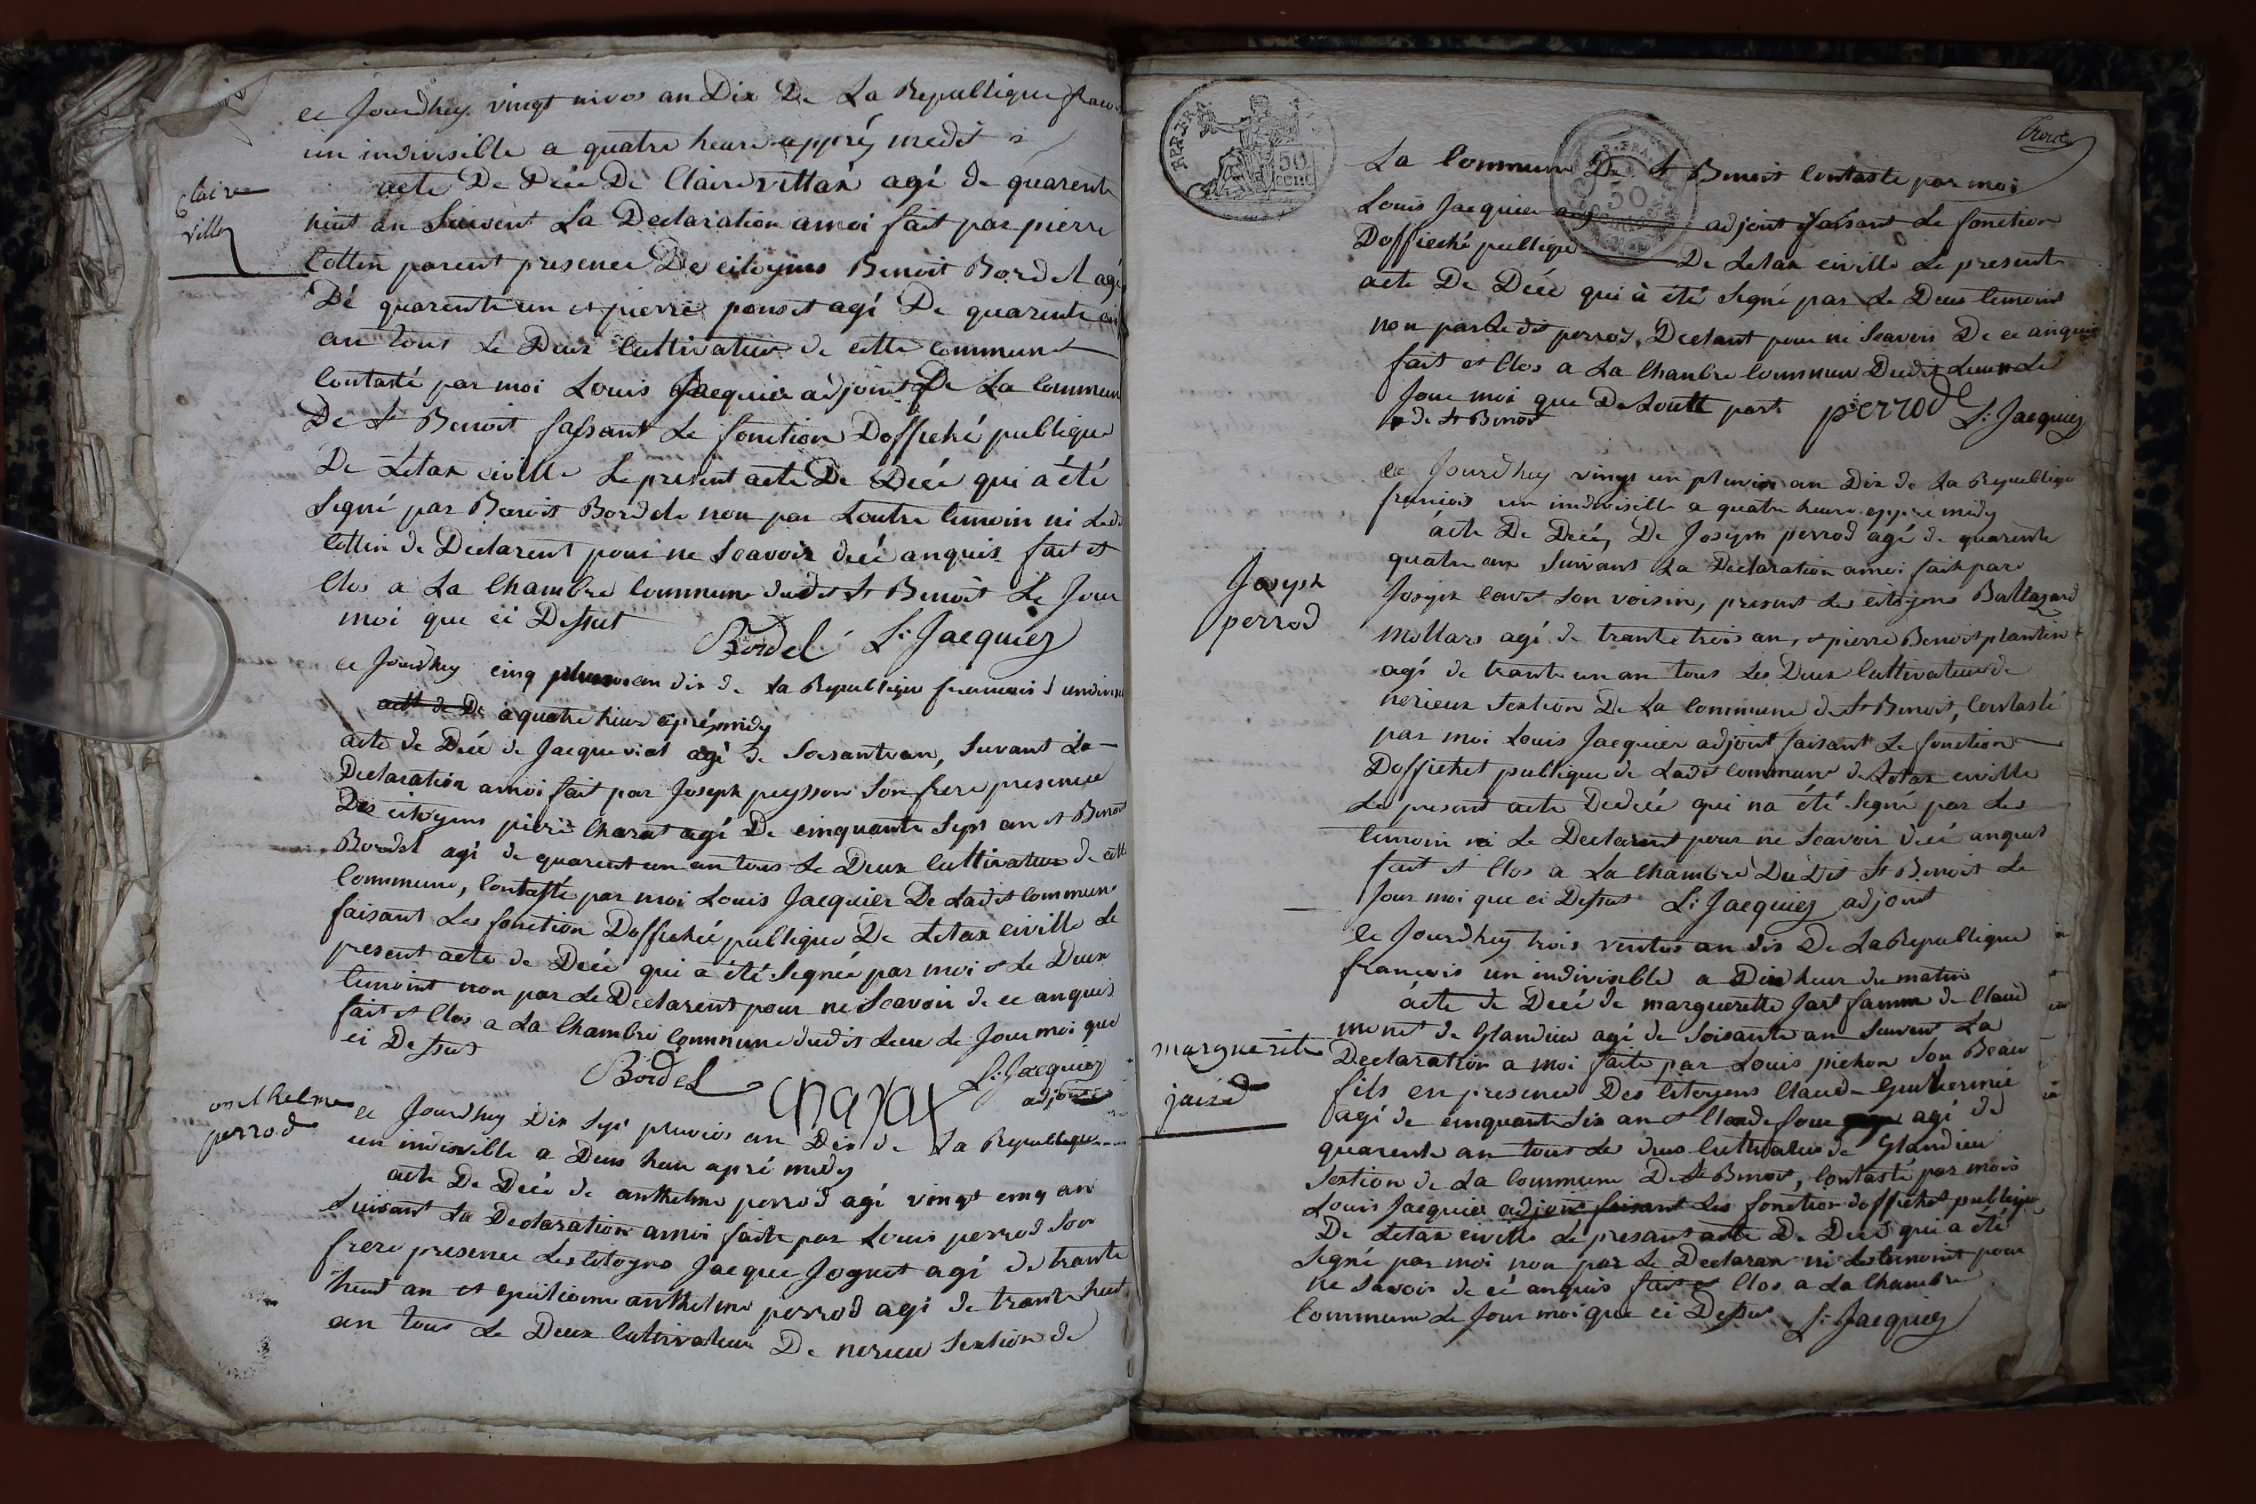 Claire
ville
ce Jourdhuy vingt nivos an Dix De La Republique
un indivisible a quatre heure apprés medit
acte De Décé De Claire villan agé de quarente
huit an Suivent La Declaration amoi fait par pierre
Cottin parent presence De citoyens Benoit Bordel agé
Dé quarente un et pierre ponset agé De quarente
an tous Le Deux Cultivateur de cette commune
Contasté par moi Louis Jacquier adjoint De La Commun
De St Benoit faisant Le fonction Dofficié publique
De Letax civille Le present acte De Décé qui a été
Segné par Benoit Bordel non par Loutre temoin ni Ledit
Cottin de Declarent pour ne Scavoir décé anquis fait et
Clos a La Chambre Commune dudit St Benoit Le Jour
moi que ci Dessut
Bordel L: Jacquier
ce Jourdhuy cinq an dix de La Republique francais
acte de De a quatre heure aprés midy
acte de Décé de Jacque viat agé de Soisant an, Suvant La
Declaration amoi fait par Joseph peysson Son frere presence
Des citoyens pierre Charat agé De cinquante Sept an et Benoit
Bordel agé de quarent un an tous Le Deux Cultivateur de cette
Commune, Contasté par moi Louis Jacquier De Ladit Commune
faisant Les fonction Dofficié publique De Letax civille Le
present acte de Décé qui a été Segnée par moi et Le Deux
temoint non par Le Declarent pour ne Scavoir de ce anquis
fait et Clos a La Chambre Commune dudit Lieu Le Jour moi que
ci Dessus
Bordel CHARAT L: Jacquier
adjoint
anthelme
perrod
ce Jourdhuy Dix Sept pluvios an Dix de La Republique
un indivisible a Deux heure apré midy
acte De Décé de anthelme perrod agé vingt cinq an
Suivant La Declaration amoi faite par Louis perrod Son
frere presence Les Citoyens Jacque Jognet agé de trante
heut an et anthelme perrod agé de trante heut
an tous Le Deux Cultivateur De nerieu Sextion de
REP. FRA.
50
CENT
50
La Commune De St Benoit Contasté par moi
Louis Jacquier adjoint faisant Le fonction
Dofficié publique De Letax civille Le present
acte De Décé qui à été Segné par Le Deux temoint
non par Ledit perrod, Declant pour ne Scavoir De ce anquis
fait et Clos a La Chambre Commun Dudit Lieu Le
Jour moi que De Soutt part perrod L: Jacquier
de St Benoit
Joseph
perrod
ce Jourdhuy vingt un pluvios an Dix de La Republique
francois un indivisille a quatre heure appre midy
acte De Décé, De Joseph perrod agé de quarente
quatre an Suivant La Declaration amoi fait par
Joseph Son voisin, present Les citoyens Baltazard
mollard agé de trante trois an, et pierre Benoit plantin
agé de trante un an tous Les Deux Cultivateur de
nerieux Sextion De La Commune de St Benoit, Contasté
par moi Louis Jacquier adjoint faisant Le fonction
Dofficiet publique de Ladit Commune de Letax civille
Le present acte Dedécé qui na été Segné par Les
temoin ni Le Declarent pour ne Scavoir décé anquis
fait et Clos a La Chambre Du Dit St Benoit Le
Jour moi que ci Dessut L: Jacquier adjoint
marguerite
jarsd
Ce Jourdhuy trois ventos an dix De La Republique
francois un indivisible a Dix heur du matin
acte de Décé de marguerette Jart famme de Claud
monet de Glandieu agé de Soisante an Suivent La
Declaration a moi faite par Louis pichon Son Beau
fils en presence Des Citoyens Claud Guilermié
agé de cinquante Six an et Claude agé de
quarente an tous Les deux Cultivateur de Glandieu
Sextion de La Commune De St Benoit, Contasté par moi
Louis Jacquier adjoint faisant Les fonction dofficiet publique
De Letax civille Le presant acte De Décé qui a été
Segné par moi non par Le Declaran ni Les temoint pour
ne Savoir de cé anquis fait et Clos a La Chambre
Commune Le Jour moi que ci Dessu L: Jacquier